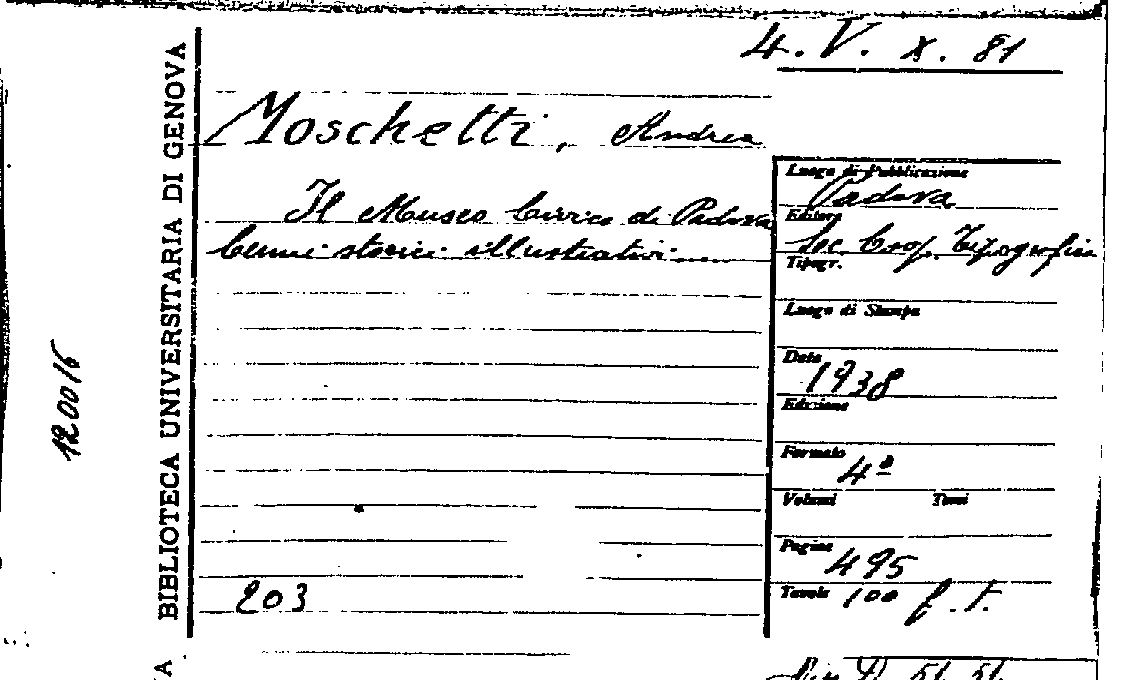 4. V. X. 81
BIBLIOTECA UNIVERSITARIA DI GENOVA
120016
Moschetti, Andrea
Il Museo Civico di Padova
Cenni storici illustrativi
203
Luogo di Pubblicazione
Padova
Editore
Soc. Coop. Tipografica
Tipogr.
Luogo di Stampa
Data
1938
Edizione
Formato
4º
Volumi Tomi
Pagine
495
Tavole 100 f. t.